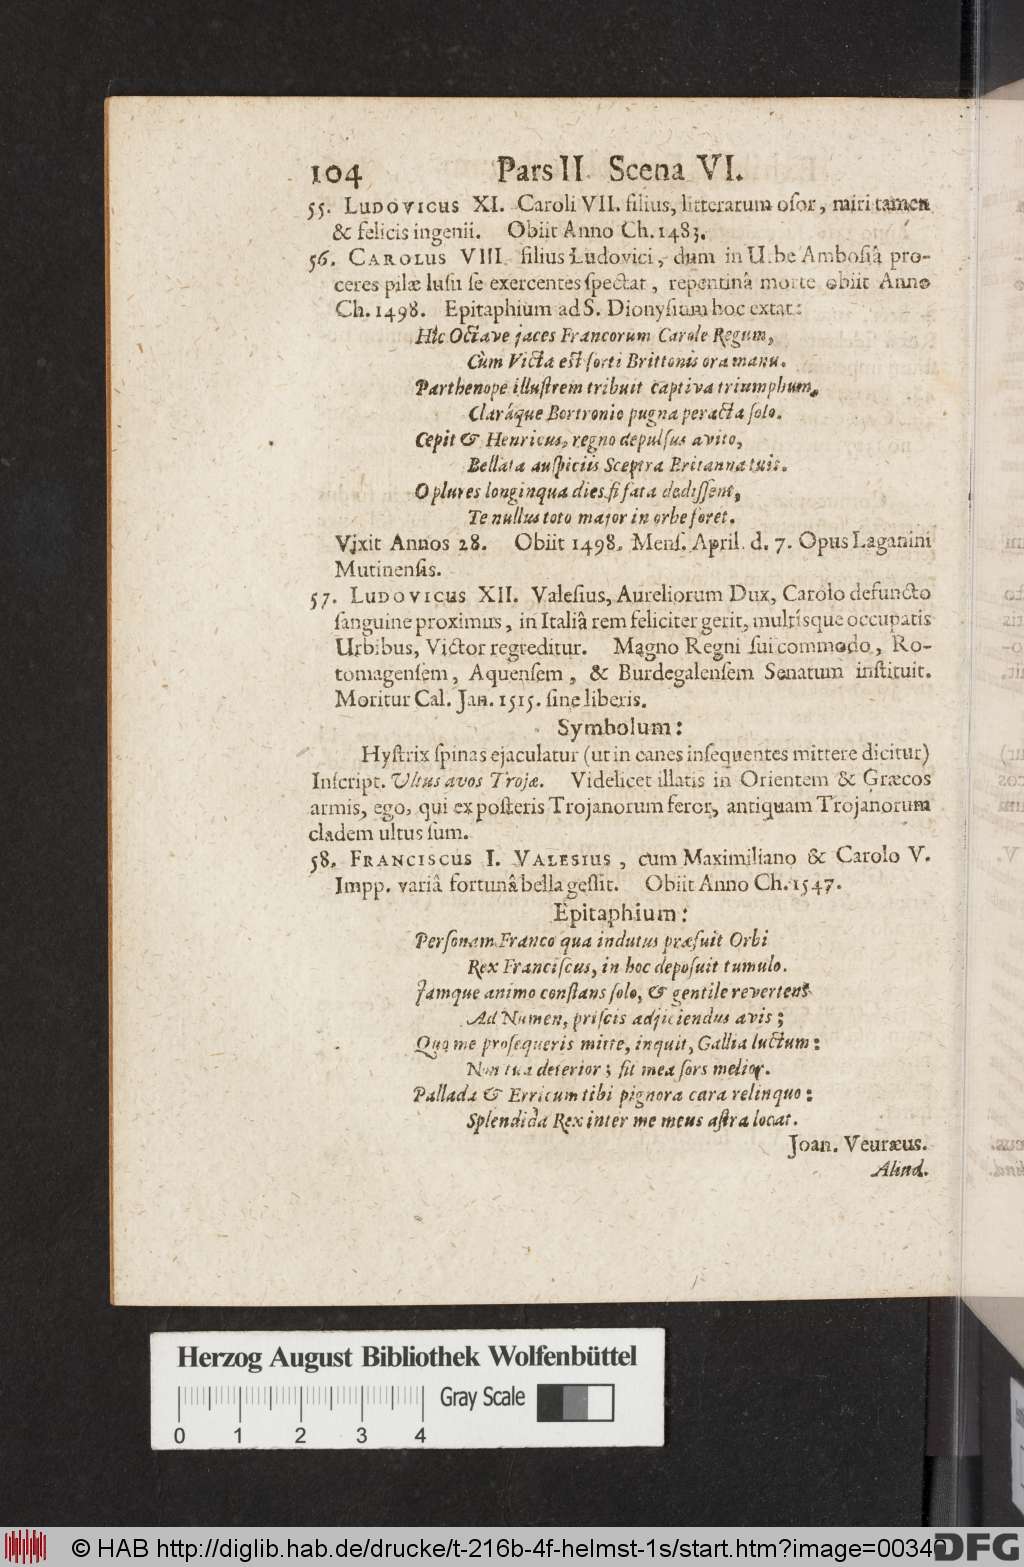 104 Pars II. Scena VI.
55. LUDOVICUS XI. Caroli VII. filius, litterarum oſor, miri tamen
& felicis ingenii. Obiit Anno Ch. 1483.
56. CAROLUS VIII. filius Ludovici, dum in Urbe Ambosiâ pro-
ceres pilæ luſu ſe exercentes ſpectat, repentinâ morte obiit Anno
Ch. 1498. Epitaphium ad S. Dionyſium hoc extat:
Hîc Octave jaces Francorum Carole Regum,
Cùm Victa est forti Brittonis ora manu.
Parthenope illuſtrem tribuit captiva triumphum,
Claráque Bortronio pugna peracta ſolo.
Cepit & Henricus, regno depulſus avito,
Bellata auſpiciis Sceptra Britanna tuis.
O plures longinqua dies ſi fata dediſſent,
Te nullus toto major in orbe foret.
Vixit Annos 28. Obiit 1498. Menſ. April. d. 7. Opus Laganini
Mutinenſis.
57. LUDOVICUS XII. Valeſius, Aureliorum Dux, Carolo defuncto
ſanguine proximus, in Italiâ rem feliciter gerit, multísque occupatis
Urbibus, Victor regreditur. Magno Regni ſui commodo, Ro-
tomagenſem, Aquenſem, & Burdegalenſem Senatum inſtituit.
Moritur Cal. Jan. 1515. ſine liberis.
Symbolum:
Hyſtrix ſpinas ejaculatur (ut in canes inſequentes mittere dicitur)
Inſcript. Ultus avos Trojæ. Videlicet illatis in Orientem & Græcos
armis, ego, qui ex poſteris Trojanorum feror, antiquam Trojanorum
cladem ultus ſum.
58. FRANCISCUS I. VALESIUS, cum Maximiliano & Carolo V.
Impp. variâ fortunâ bella geſſit. Obiit Anno Ch. 1547.
Epitaphium:
Perſonam Franco qua indutus præfuit Orbi
Rex Franciſcus, in hoc depoſuit tumulo.
Jamque animo conſtans ſolo, & gentile revertens
Ad Numen, priſcis adjiciendus avis;
Quo me proſequeris mitte, inquit, Gallia luctum:
Non tua deterior; ſit mea ſors melior.
Pallada & Erricum tibi pignora cara relinquo:
Splendida Rex inter me meus aſtra locat.
Joan. Veuræus.
Aliud.
Herzog August Bibliothek Wolfenbüttel
Gray Scale
0 1 2 3 4
© HAB http://diglib.hab.de/drucke/t-216b-4f-helmst-1s/start.htm?image=00340
DFG